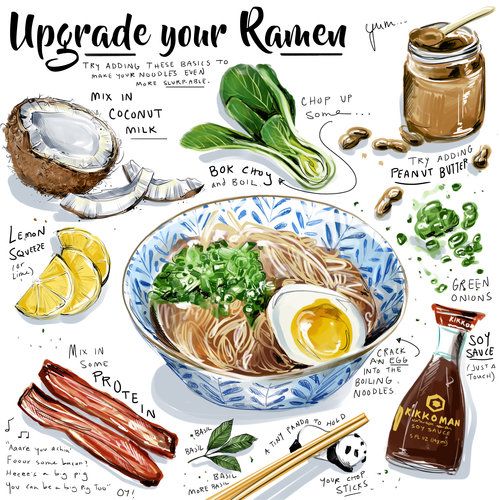 Upgrade your Ramen
TRY ADDING THESE BASICS TO
MAKE YOUR NOODLES EVEN
MORE SLURP-ABLE.
yum...
MIX IN
COCONUT
MILK
CHOP UP
some....
BOK CHOY
and BOIL.
TRY ADDING
PEANUT BUTTER
LEMON
SQUEEZE
(or
Lime)
GREEN
ONIONS
KIKKOMAN
SOY
SAUCE
(JUST A
TOUCH)
CRACK
AN EGG
INTO THE
BOILING
NOODLES.
KIKKOMAN
SOY SAUCE
5 FL OZ
MIX IN
SOME
PROTEIN
"Aaare you achin'
Foour some bacon?
Heeere's a big pig
You can be a big Pig Too"
OY!
BASIL
BASIL
MORE BASIL
A TINY PANDA TO HOLD
YOUR CHOP
STICKS